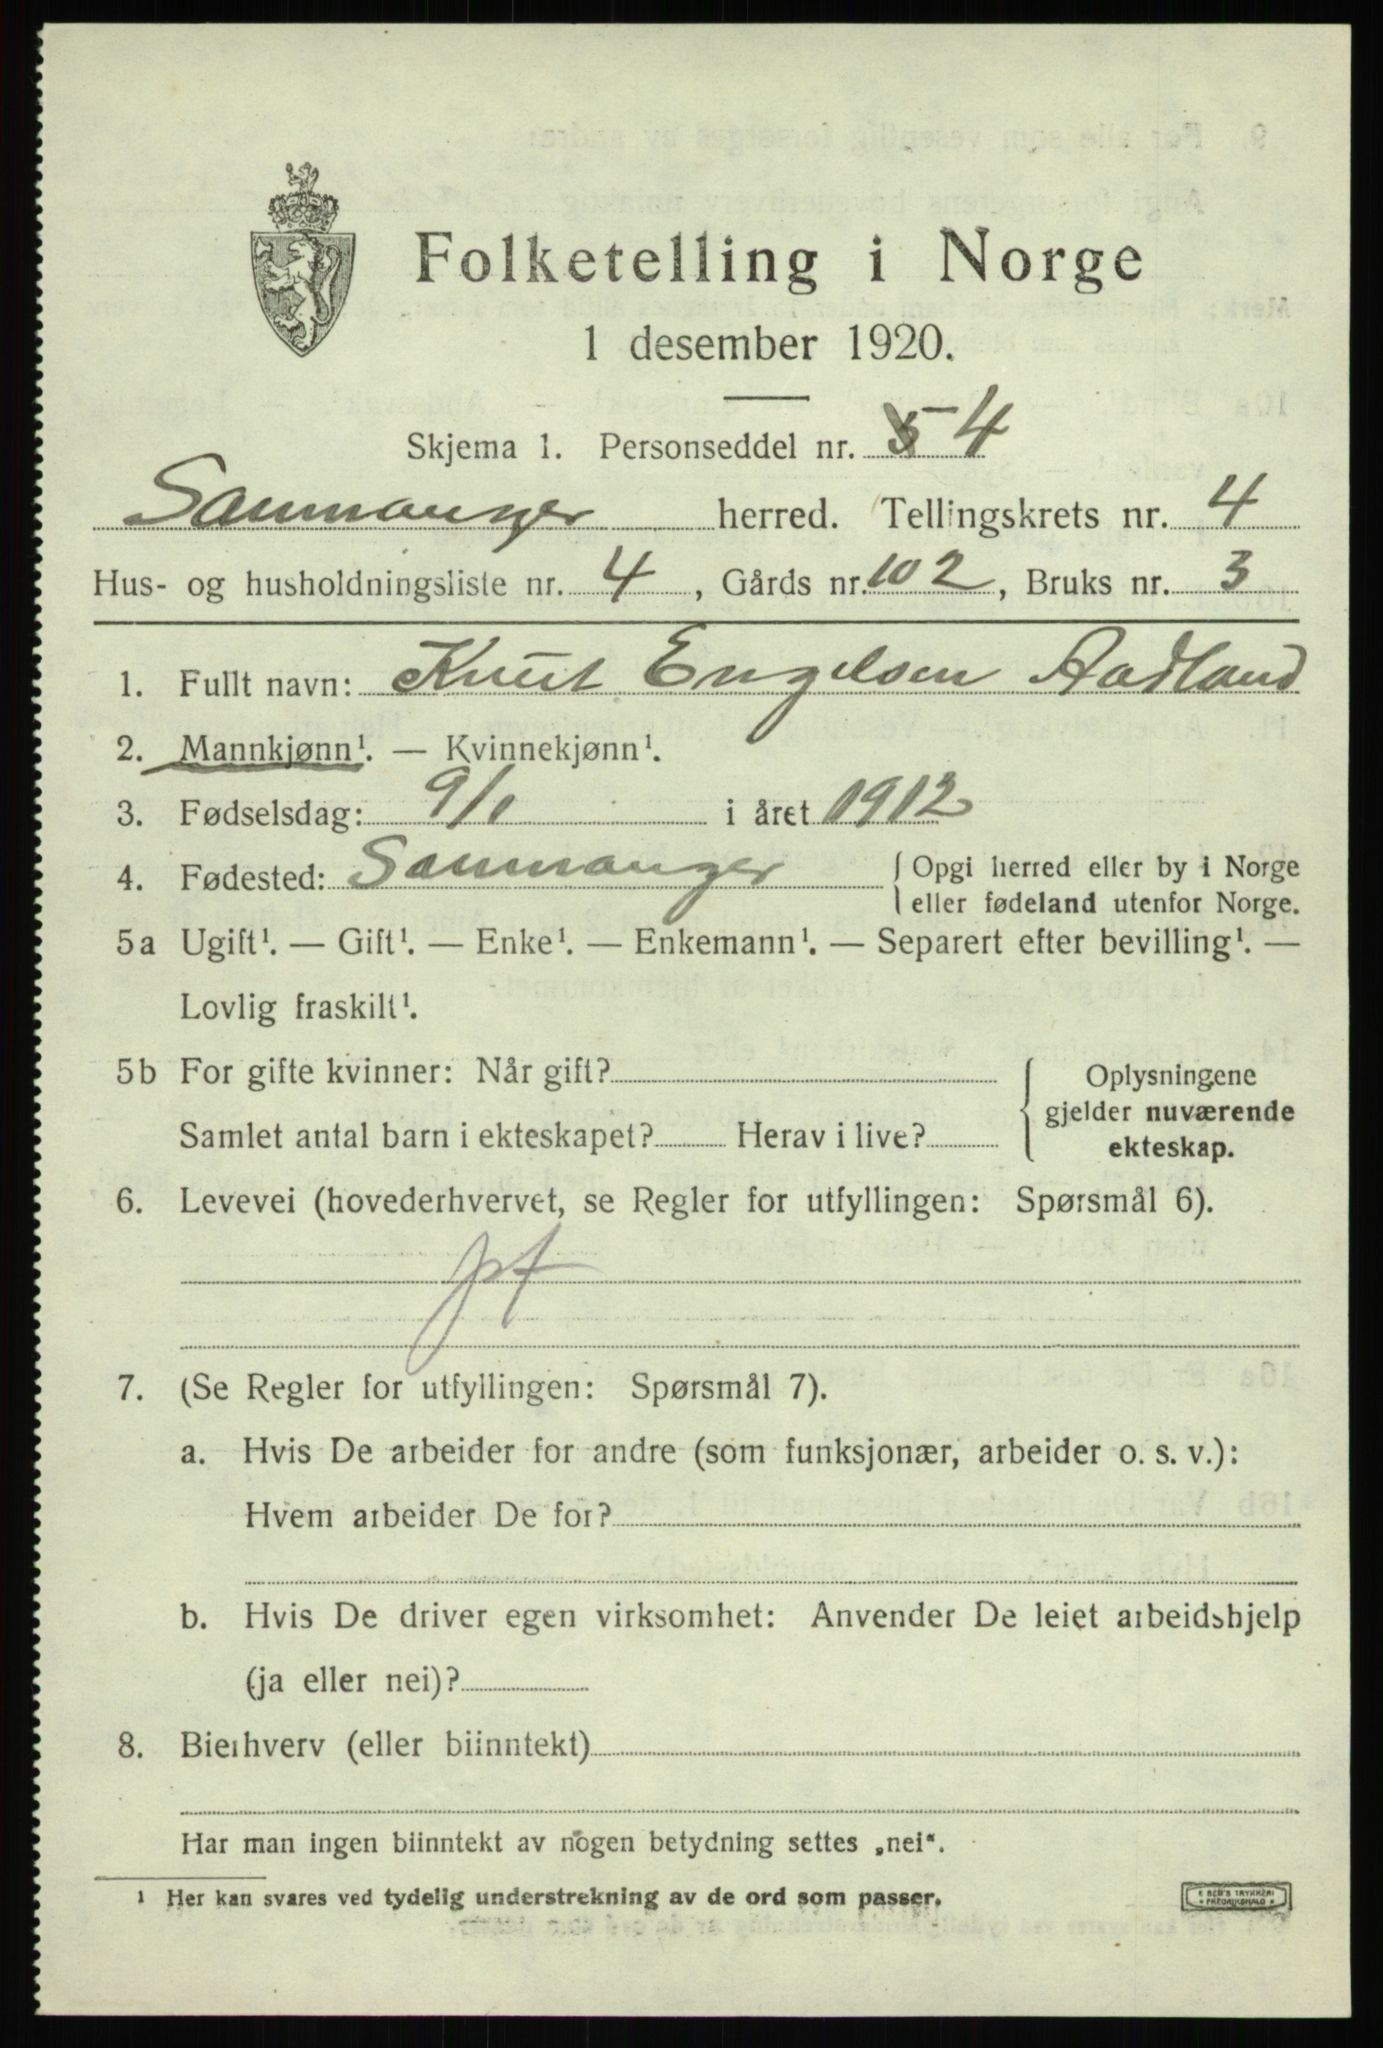 Folketelling i Norge
1 desember 1920.
Skjema 1. Personseddel nr. 5 4
Saumanger herred. Tellingskrets nr. 4
Hus- og husholdningsliste nr. 4, Gårds nr. 102, Bruks nr. 3
1. Fullt navn: Knut Engelsen Aadland
2. Mannkjønn¹. — Kvinnekjønn¹.
3. Fødselsdag: 9/1 i året 1912
4. Fødested: Saumanger { Opgi herred eller by i Norge
eller fødeland utenfor Norge.
5a Ugift¹. — Gift¹. — Enke¹. — Enkemann¹. — Separert efter bevilling¹. —
Lovlig fraskilt¹.
5b For gifte kvinner: Når gift?
Samlet antal barn i ekteskapet? Herav i live?
{ Oplysningene
gjelder nuværende
ekteskap.
6. Levevei (hovederhvervet, se Regler for utfyllingen: Spørsmål 6).
7. (Se Regler for utfyllingen: Spørsmål 7).
a. Hvis De arbeider for andre (som funksjonær, arbeider o. s. v.):
Hvem arbeider De for?
b. Hvis De driver egen virksomhet: Anvender De leiet arbeidshjelp
(ja eller nei)?
8. Bierhverv (eller biinntekt)
Har man ingen biinntekt av nogen betydning settes „nei“.
¹ Her kan svares ved tydelig understrekning av de ord som passer.